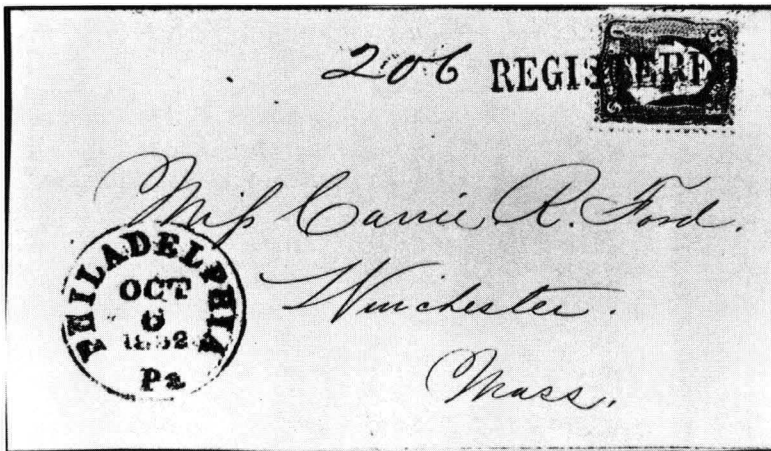 206 REGISTERED
Miss Carrie R. Ford.
Winchester.
Mass.
PHILADELPHIA
OCT
6
1862
Pa